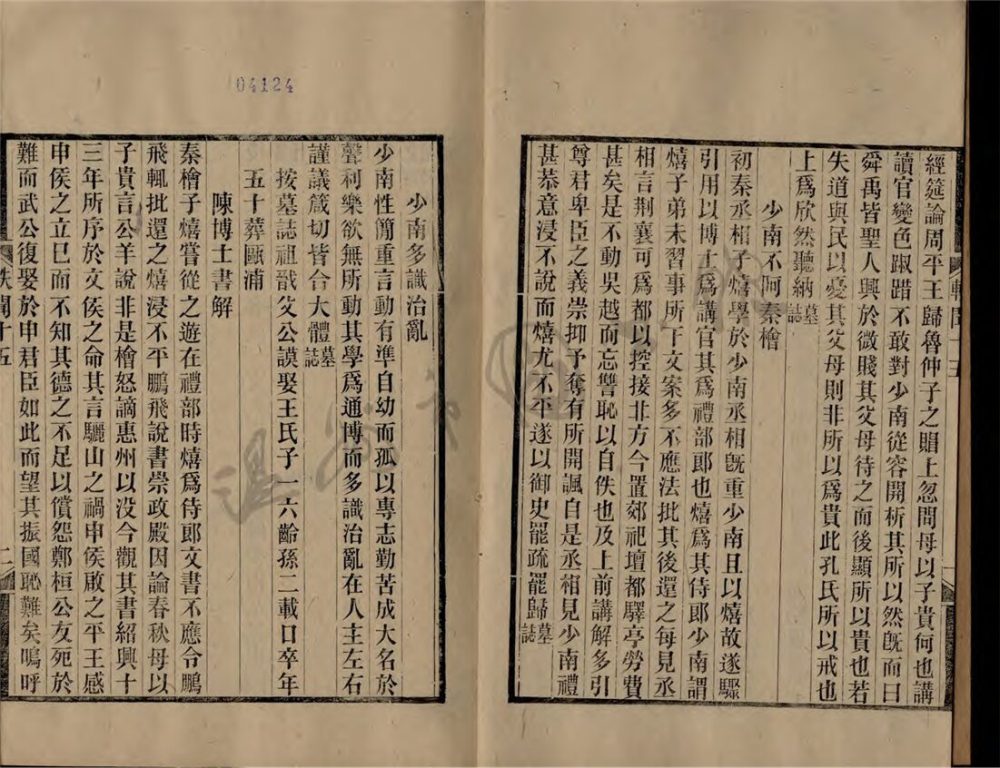 經筵論周平王歸魯仲子之賵上忽問母以子貴何也講
讀官變色踧踖不敢對少南從容開析其所以然旣而曰
舜禹皆聖人興於微賤其父母待之而後顯所以貴也若
失道與民以憂其父母則非所以爲貴此孔氏所以戒也
上爲欣然聽納墓誌
少南不阿秦檜
初秦丞相子熺學於少南丞相旣重少南且以熺故遂驟
引用以博士爲講官其爲禮部郎也熺爲其侍郎少南謂
熺子弟未習事所下文案多不應法批其後還之每見丞
相言荆襄可爲都以控接非方今置郊祀壇都驛亭勞費
甚矣是不動吳越而忘讐恥以自佚也及上前講解多引
尊君卑臣之義崇抑予奪有所開諷自是丞相見少南禮
甚恭意浸不說而熺尤不平遂以御史罷疏罷歸墓誌
軼聞十五
04124
少南多識治亂
少南性簡重言動有準自幼而孤以專志勤苦成大名於
聲利樂欲無所動其學爲通博而多識治亂在人主左右
謹議箴切皆合大體墓誌
按墓誌祖戩父公謨娶王氏子一六齡孫二載口卒年
五十葬甌浦
陳博士書解
秦檜子熺嘗從之遊在禮部時熺爲侍郎文書不應令鵬
飛輒批還之熺浸不平鵬飛說書崇政殿因論春秋母以
子貴言公羊說非是檜怒謫惠州以没今觀其書紹興十
三年所序於文侯之命其言驪山之禍申侯啟之平王感
申侯之立已而不知其德之不足以償怨鄭桓公友死於
難而武公復娶於申君臣如此而望其振國恥難矣嗚呼
軼聞十五
二